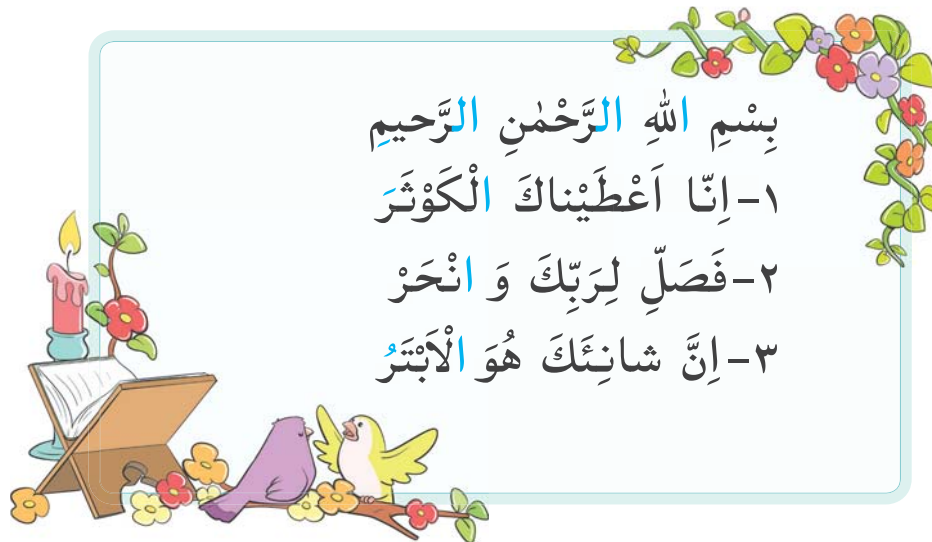 بِسْمِ اللهِ الرَّحْمٰنِ الرَّحيمِ
١-اِنّا اَعْطَيْناكَ الْكَوْثَرَ
٢-فَصَلِّ لِرَبِّكَ وَ انْحَرْ
٣-اِنَّ شانِئَكَ هُوَ الْاَبْتَرُ